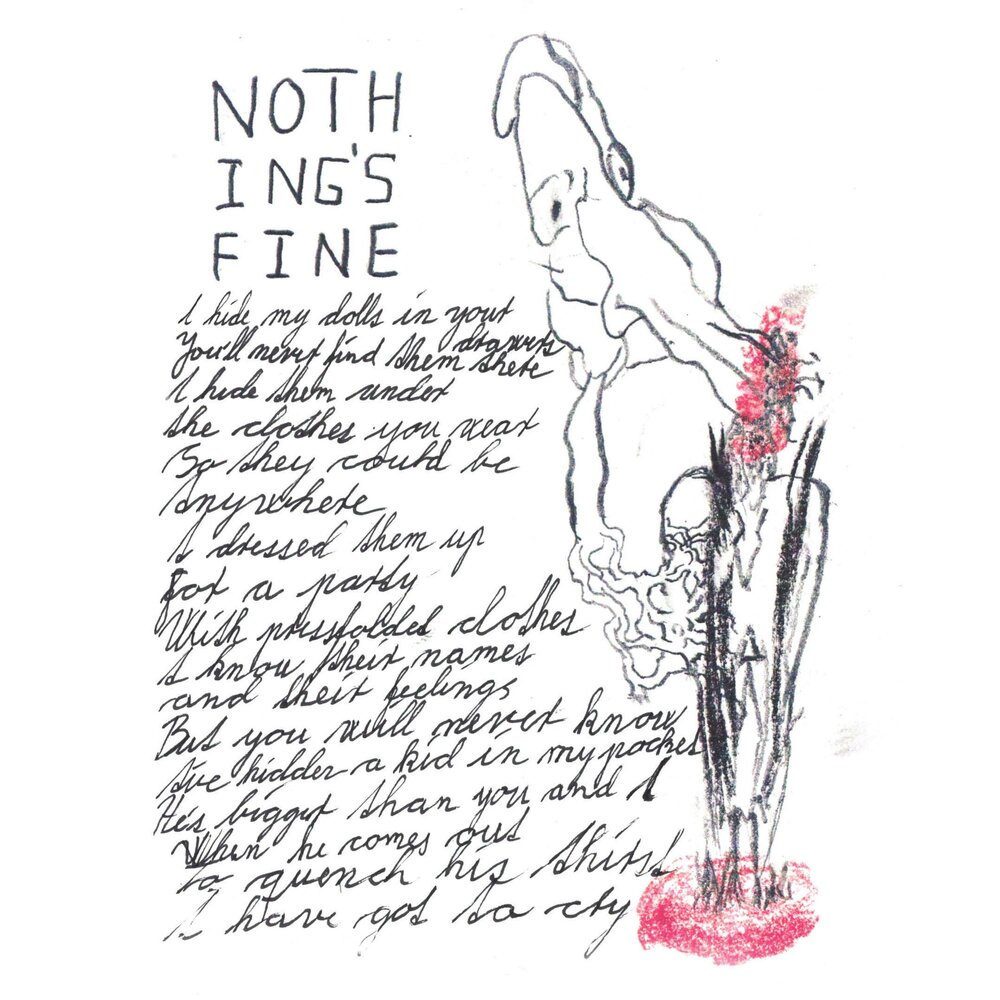 NOTH
ING'S
FINE
I hide my dolls in your
drawers
You'll never find them there
I hide them under
the clothes you wear
So they could be
Anywhere
I dressed them up
For a party
With pressfolded clothes
I know their names
and their feelings
But you will never know
I've hidden a kid in my pocket
He's bigger than you and I
When he comes out
to quench his thirst
I have got to cry